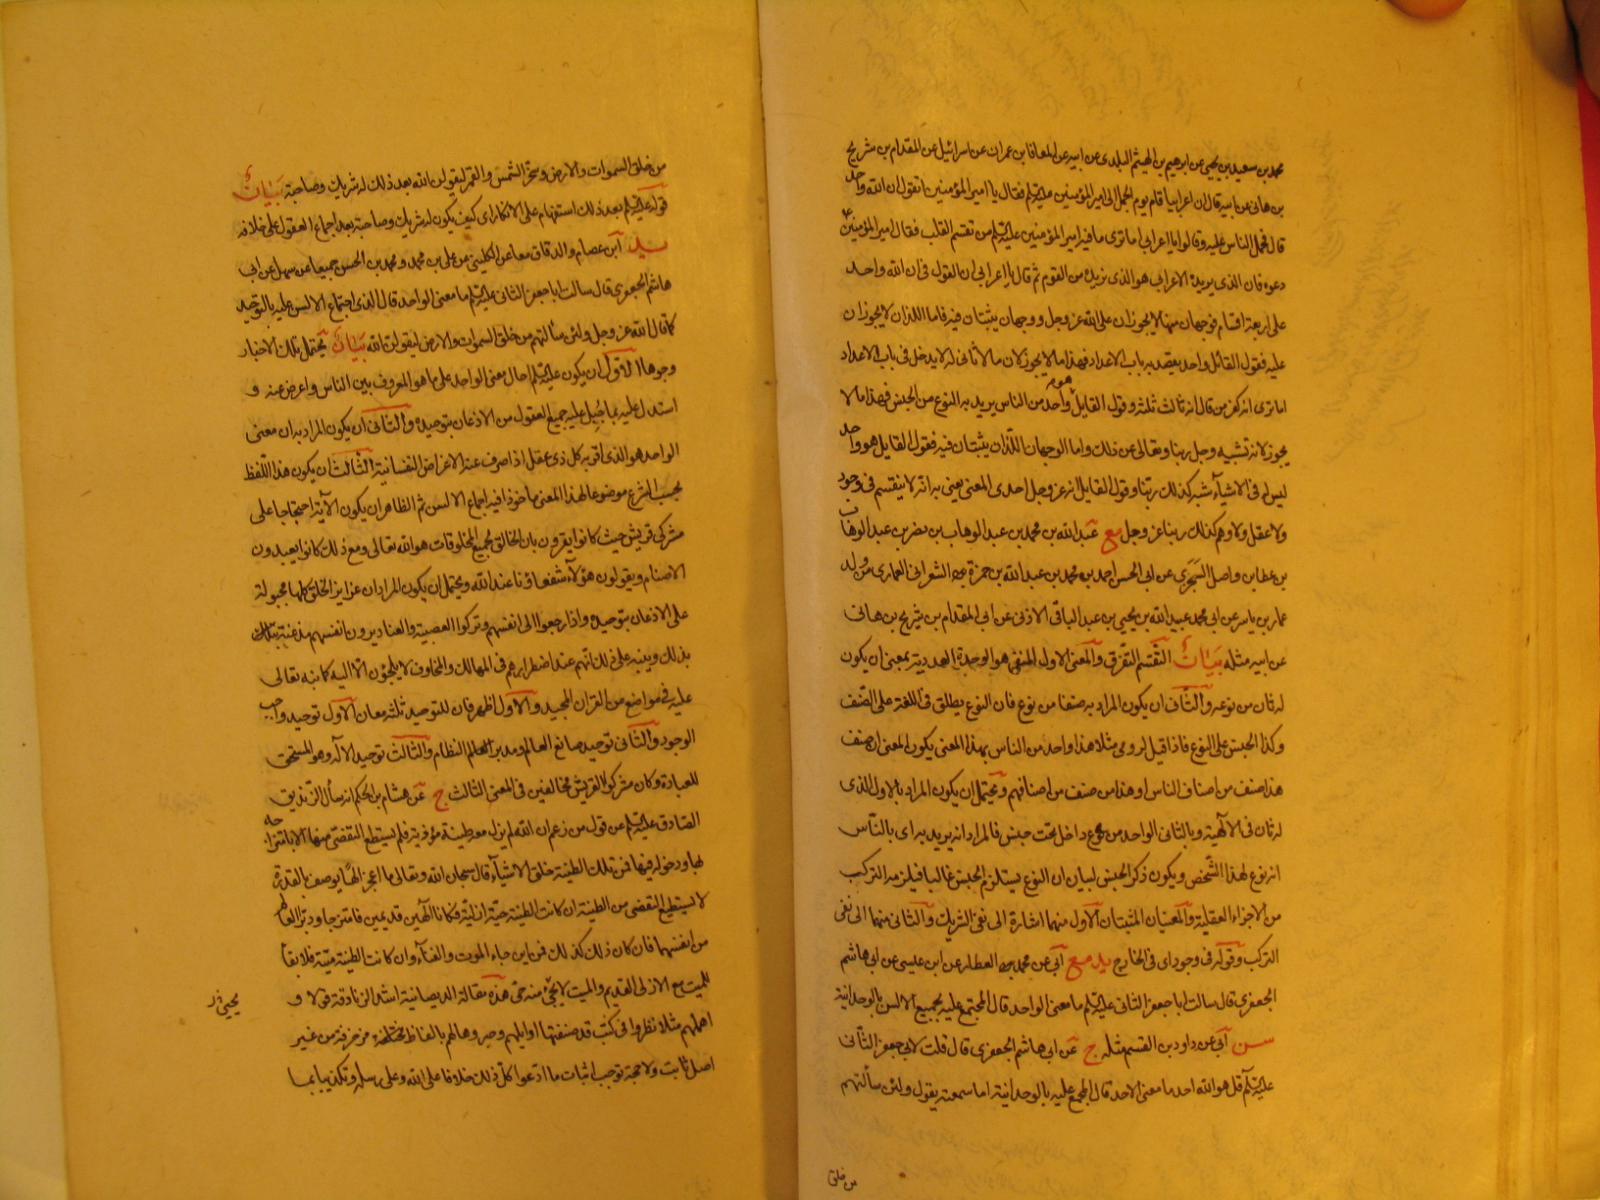 محمد بن سعيد بن يحيى عن ابرهيم بن الهيثم البلدى عن ابيه عن المعافا بن عمران عن اسرائيل عن المقدام بن شريح
بن هانى عن ابيه قال ان اعرابيا قام يوم الجمل الى امير المؤمنين عليه السلم فقال يا امير المؤمنين اتقول ان الله واحد
قال فحمل الناس عليه وقالوا يا اعرابى اما ترى ما فيه امير المؤمنين عليه السلم من تقسم القلب فقال امير المؤمنين ع
دعوه فان الذى يريده الاعرابى هو الذى نريده من القوم ثم قال يا اعرابى ان القول فى ان الله واحد
على اربعة اقسام فوجهان منها لا يجوزان على الله عز وجل ووجهان يثبتان فيه فاما اللذان لا يجوزان
عليه فقول القائل واحد يقصد به باب الاعداد فهذا ما لا يجوز لان ما لا ثانى له لا يدخل فى باب الاعداد
اما ترى انه كفر من قال انه ثالث ثلثة وقول القايل هو واحد من الناس يريد به النوع من الجنس فهذا ما لا
يجوز لانه تشبيه وجل ربنا وتعالى عن ذلك واما الوجهان اللذان يثبتان فيه فقول القايل هو واحد
ليس له فى الاشيآء شبه كذلك ربنا وقول القايل انه عز وجل احدى المعنى يعنى به انه لا ينقسم فى وجود
ولا عقل ولا وهم كذلك ربنا عز وجل مع عبد الله بن محمد بن عبد الوهاب بن نصر بن عبد الوهاب
بن عطا بن واصل السجزى عن ابى الحسن احمد بن محمد بن عبد الله بن حمزة الشعرانى العمارى من ولد
عمار بن ياسر عن ابى محمد عبيد الله بن يحيى بن عبد الباقى الاذنى عن ابى المقدام بن شريح بن هانى
عن ابيه مثله بيان التقسم التفرق والمعنى الاول المنفى هو الوحدة العددية بمعنى ان يكون
له ثان من نوعه والثانى ان يكون المراد به صنفا من نوع فان النوع يطلق فى اللغة على الصنف
وكذا الجنس على النوع فاذا قيل لرومى مثلا هذا واحد من الناس بهذا المعنى يكون المعنى ان صنف
هذا صنف من اصناف الناس او هذا من صنف من اصنافهم ويحتمل ان يكون المراد بالاول الذى
له ثان فى الالهية وبالثانى الواحد من نوع داخل تحت جنس فالمراد انه يريد به اى بالناس
انه نوع لهذا الشخص ويكون ذكر الجنس لبيان ان النوع يستلزم الجنس غالبا فيلزمه التركب
من الاجزاء العقلية والمعنيان المثبتان الاول منهما اشارة الى نفى الشريك والثانى منهما الى نفى
التركب وقوله فى وجود اى فى الخارج يد مع ابى عن محمد العطار عن ابن عيسى عن ابى هاشم
الجعفرى قال سالت ابا جعفر الثانى عليه السلم ما معنى الواحد قال المجتمع عليه بجميع الالسن بالوحدانية
سن ابى عن داود بن القسم مثله ج عن ابى هاشم الجعفرى قال قلت لابى جعفر الثانى
عليه السلم قل هو الله احد ما معنى الاحد قال المجمع عليه بالوحدانية اما سمعته يقول ولئن سألتهم
من خلق
من خلق السموات والارض وسخر الشمس والقمر ليقولن الله بعد ذلك له شريك وصاحبة بيان
قوله عليه السلم بعد ذلك استفهام على الانكار اى كيف يكون له شريك وصاحبة بعد اجماع العقول على خلافه
يد ابن عصام والدقاق معا عن الكلينى عن على بن محمد ومحمد بن الحسن جميعا عن سهل عن ابى
هاشم الجعفرى قال سالت ابا جعفر الثانى عليه السلم ما معنى الواحد قال الذى اجتماع الالسن عليه بالتوحيد
كما قال الله عز وجل ولئن سألتهم من خلق السموات والارض ليقولن الله بيان تحتمل تلك الاخبار
وجوها الاول ان يكون عليه السلم احال معنى الواحد على ما هو المعروف بين الناس واعرض عنه و
استدل عليه بما جبل عليه جميع العقول من الاذعان بتوحيده والثانى ان يكون المراد به ان معنى
الواحد هو الذى اقر به كل ذى عقل اذا صرف عنه الاغراض النفسانية الثالث ان يكون هذا اللفظ
بحسب الشرع موضوعا لهذا المعنى ماخوذا فيه اجماع الالسن ثم الظاهر ان يكون الآية احتجاجا على
مشركى قريش حيث كانوا يقرون بان الخالق لجميع المخلوقات هو الله تعالى ومع ذلك كانوا يعبدون
الاصنام ويقولون هؤلآء شفعاؤنا عند الله ويحتمل ان يكون المراد ان غرايز الخلق كلها مجبولة
على الاذعان بتوحيده واذا رجعوا الى انفسهم وتركوا العصبية والعناد يرون انفسهم مذعنة
بذلك وينبه على ذلك انهم عند اضطرارهم فى المهالك والمخاوف لا يلجؤن الا اليه كما نبه تعالى
عليه فى مواضع من القران المجيد والاول اظهر فان للتوحيد ثلثة معان الاول توحيد واجب
الوجود والثانى توحيد صانع العالم ومدبر النظام والثالث توحيد الاله وهو المستحق
للعبادة وكان مشركوا القريش مخالفين فى المعنى الثالث ج عن هشام بن الحكم انه سأل الزنديق
الصادق عليه السلم عن قول من زعم ان الله لم يزل معه طينة مؤذية فلم يستطع التفصى منها الا بامتزاجه
بها ودخوله فيها فمن تلك الطينة خلق الاشيآء قال سبحان الله وتعالى ما اعجز الها يوصف بالقدرة
لا يستطيع التفصى من الطينة ان كانت الطينة حية ازلية فكانا الهين قديمين فامتزجا ودبرا العالم
من انفسهما فان كان ذلك كذلك فمن اين جاء الموت والفنآء وان كانت الطينة ميتة فلا بقآ
للميت مع الازلى القديم والميت لا يجئ منه حى هذه مقالة الديصانية اشد الزنادقة قولا و
اهملهم مثلا نظروا فى كتب قد صنفتها اوايلهم وحبروها لهم بالفاظ مزخرفة من غير
اصل ثابت ولا حجة توجب اثبات ما ادعوا كل ذلك خلافا على الله وعلى رسله وتكذيبا بما